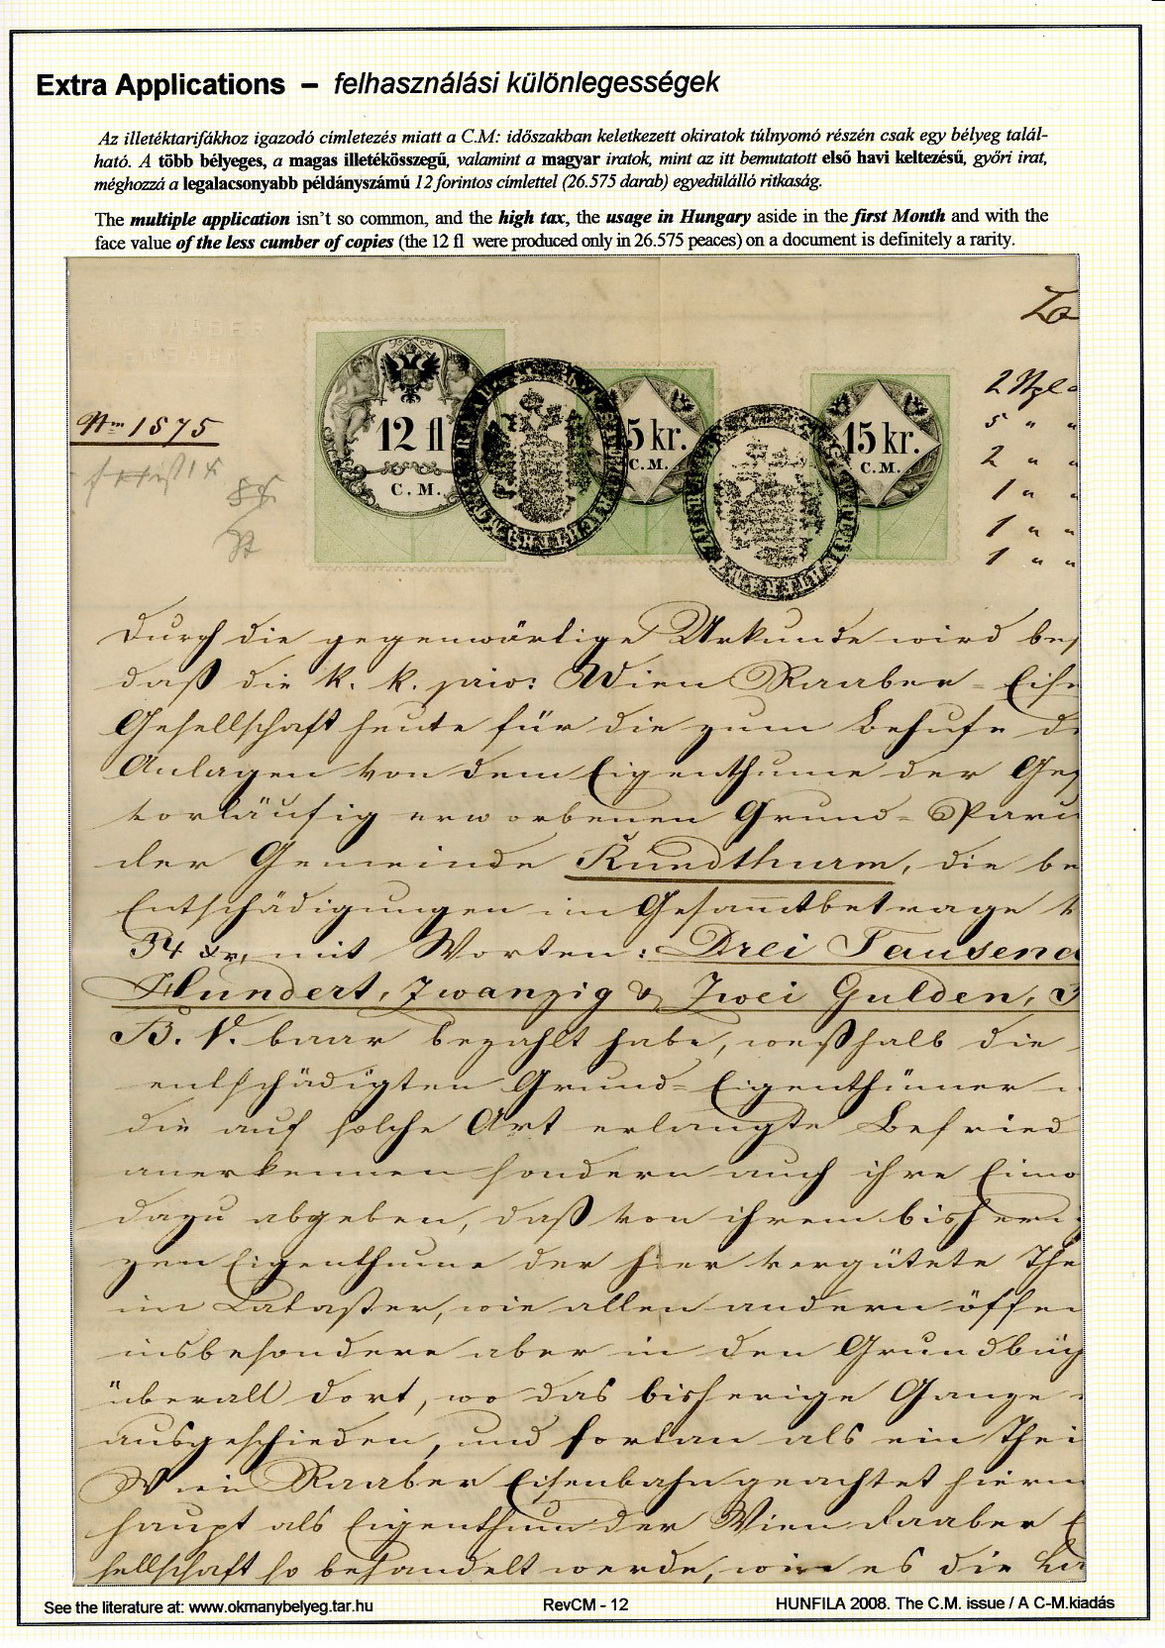 Extra Applications – felhasználási különlegességek
Az illetéktarifákhoz igazodó címletezés miatt a C.M: időszakban keletkezett okiratok túlnyomó részén csak egy bélyeg talál-
ható. A több bélyeges, a magas illetékösszegű, valamint a magyar iratok, mint az itt bemutatott első havi keltezésű, győri irat,
méghozzá a legalacsonyabb példányszámú 12 forintos címlettel (26.575 darab) egyedülálló ritkaság.
The multiple application isn't so common, and the high tax, the usage in Hungary aside in the first Month and with the
face value of the less cumber of copies (the 12 fl were produced only in 26.575 peaces) on a document is definitely a rarity.
12 fl
C. M.
15 kr.
C.M.
15 kr.
C.M.
1875
2
5 " "
2 " "
1 " "
1 " "
1 " "
Durch die gegenwärtige Urkunde wird
daß die k. k. priv: Wien Raaber-Eise
Gesellschaft heute für die zum Behufe d
Anlagen von dem Eigenthume der Ges
vorläufig erworbenen Grund-Parc
der Gemeinde Rundthurm, die be
Entschädigungen im Gesammtbetrage
34 xr, mit Worten: Drei Tausend
Hundert, Zwanzig & Zwei Gulden,
B. V. baar bezahlt habe, weßhalb die
entschädigten Grund-Eigenthümer
die auf solche Art erlangte Befried
anerkennen sondern auch ihre Einw
dazu abgeben, daß von ihrem bisheri
gen Eigenthume der hier vergütete The
im Cataster, wie allen andern öffen
insbesondere aber in den Grundbüch
überall dort, wo das bisherige Ganze
ausgeschieden, und fortan als ein Thei
Wien Raaber Eisenbahn geachtet hier
haupt als Eigenthum der Wien Raaber E
sellschaft so behandelt werde, wie es die
See the literature at: www.okmanybelyeg.tar.hu
RevCM - 12
HUNFILA 2008. The C.M. issue / A C-M.kiadás